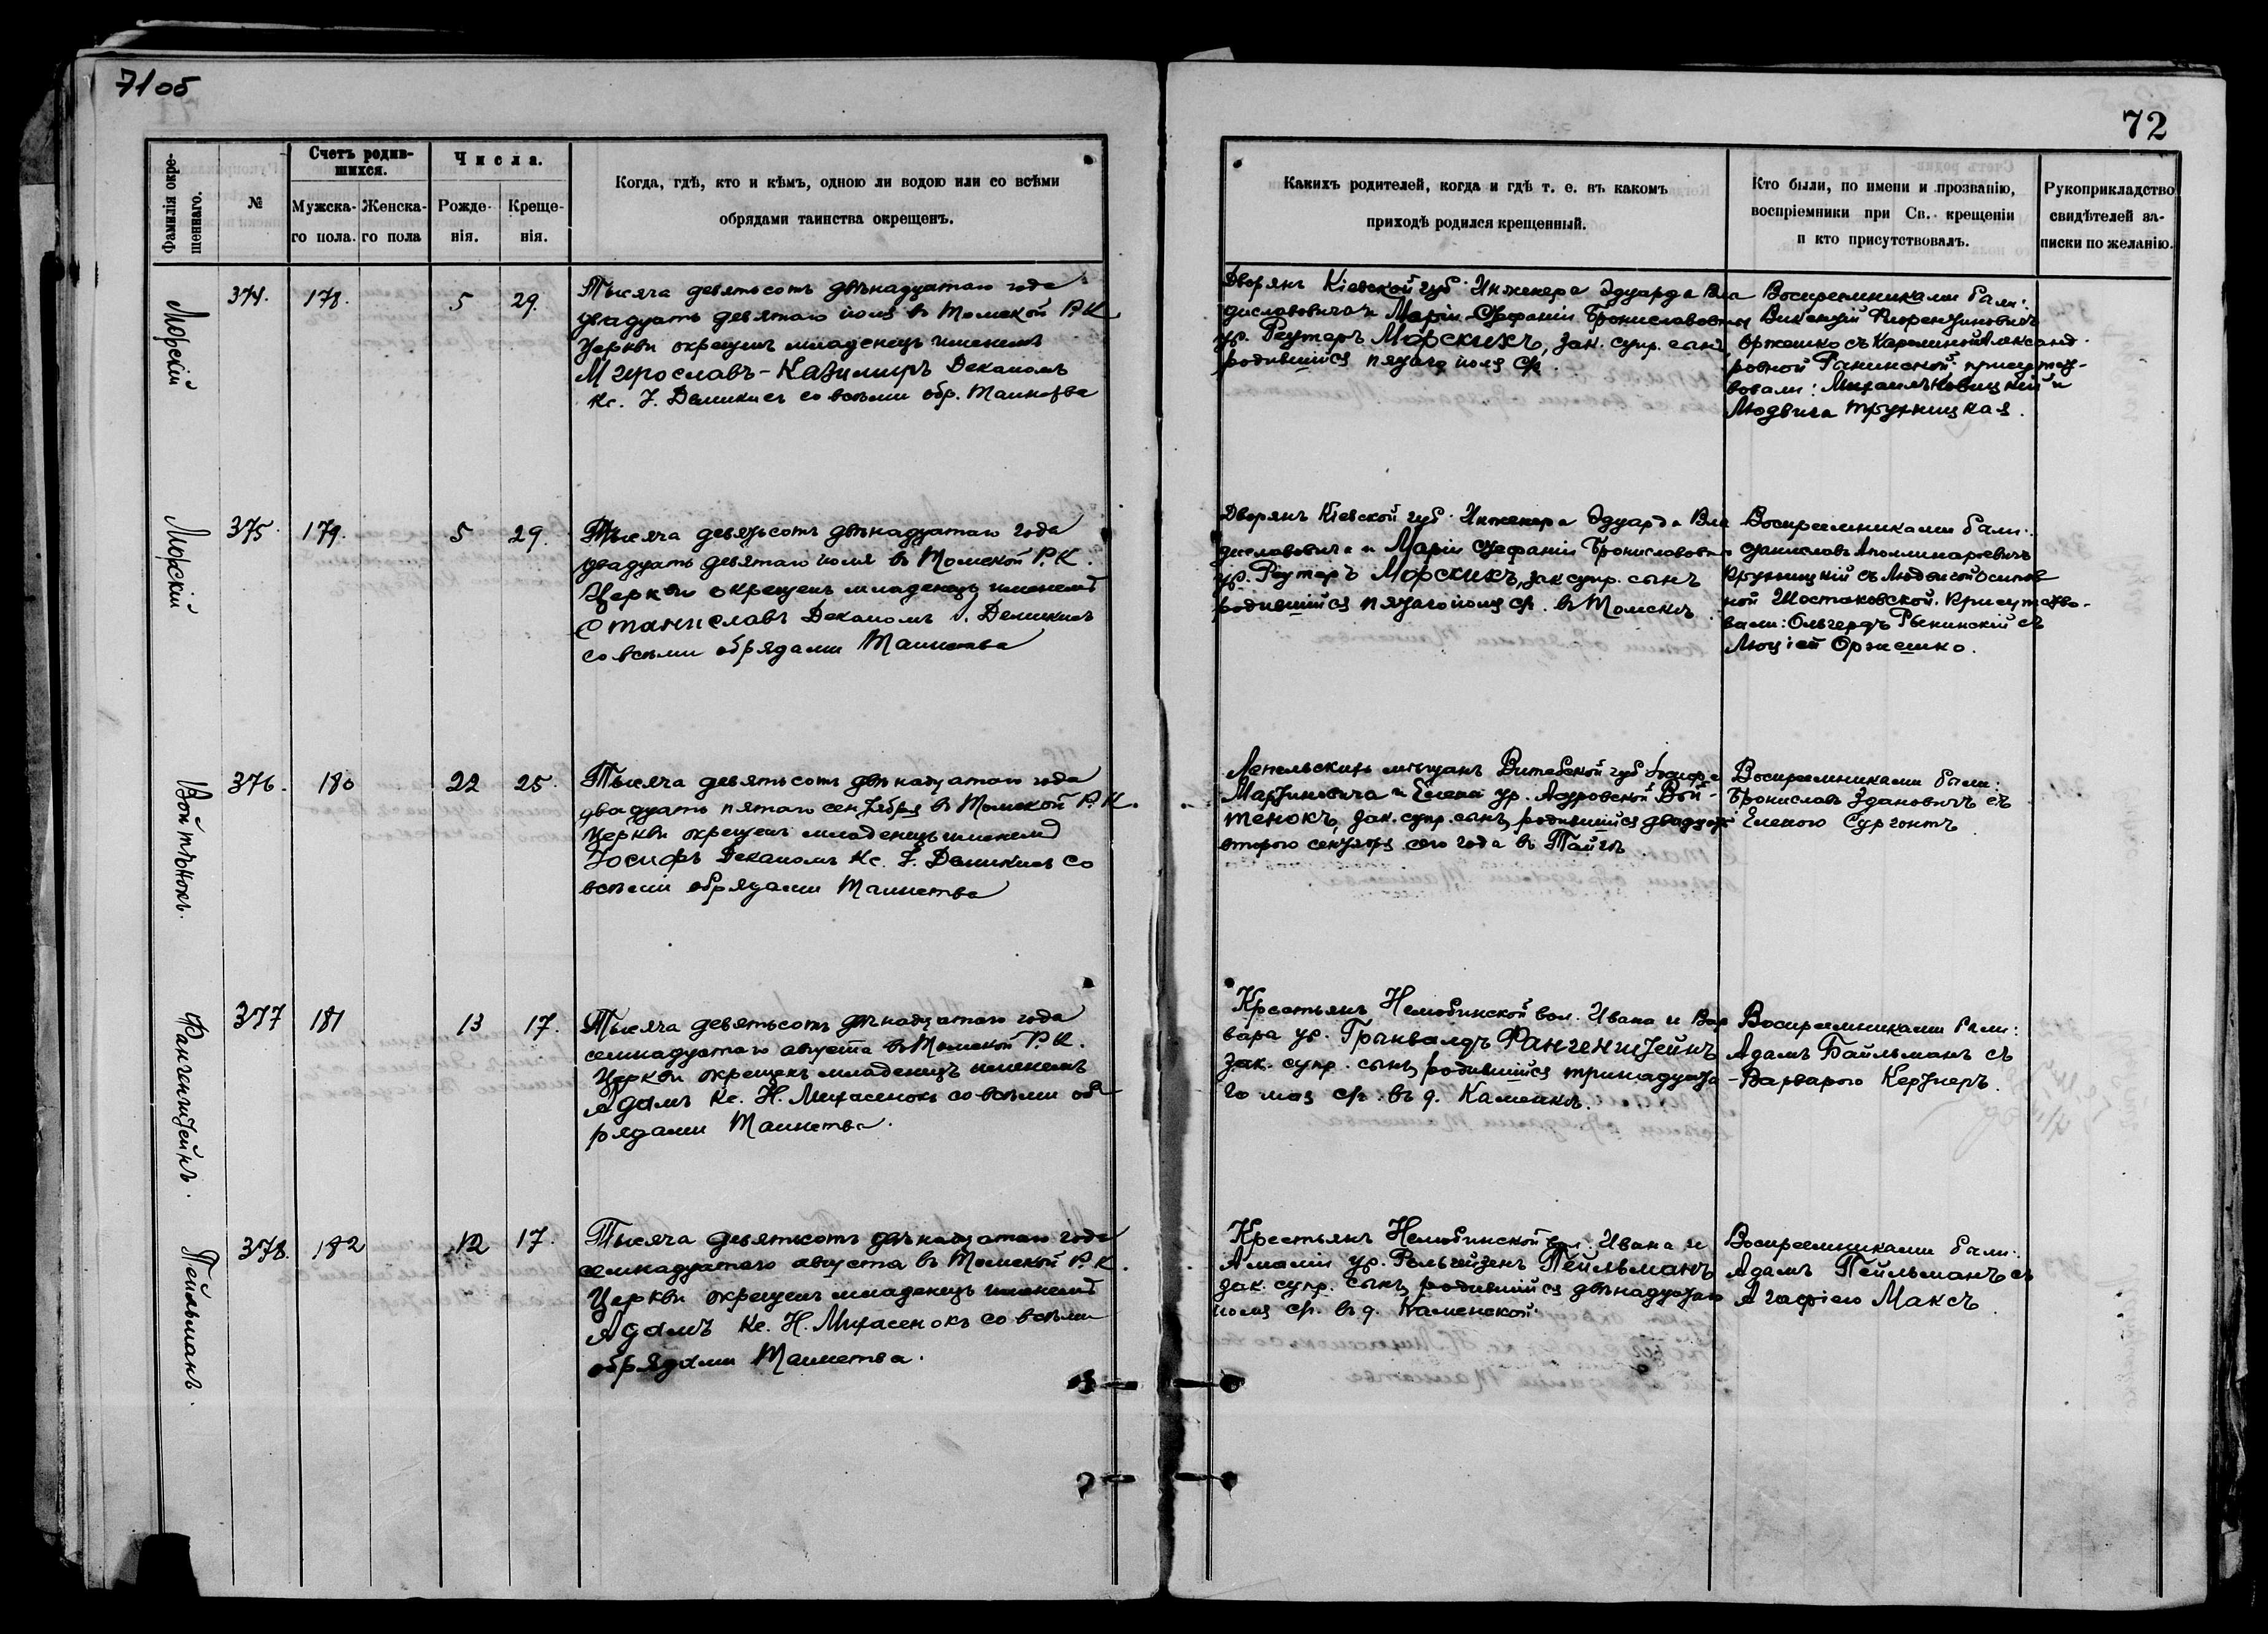 71об
72
Фамилія окре-
щеннаго.
№
Счетъ родив-
шихся.
Мужска-
го пола.
Женска-
го пола
Числа.
Рожде-
нія.
Креще-
нія.
Когда, гдѣ, кто и кѣмъ, одною ли водою или со всѣми
обрядами таинства окрещенъ.
Какихъ родителей, когда и гдѣ т. е. въ какомъ
приходѣ родился крещенный.
Кто были, по имени и прозванію,
воспріемники при Св. крещеніи
и кто присутствовалъ.
Рукоприкладство
свидѣтелей за-
писки по желанію.
Морскій
374. 178. 5 29.
Тысяча девятьсотъ двѣнадцатаго года
двадцать девятаго іюля въ Томской Р. К.
Церкви окрещенъ младенецъ именемъ
Мечрославъ-Казимиръ Деканомъ
Кс. І. Демикисъ со всѣми обр. Таинства
Дворянъ Кіевской губ. Инженера Эдуарда Вла
диславовича и Маріи Стефаніи Брониславовны
ур. Реутеръ Морскихъ, зак. супр. сынъ,
родившійся пятаго іюля ст.
Воспреемниками были:
Викентій Флорентиновичъ
Оржешко съ Каролиной Александ-
ровной присутст-
вовали: Михаилъ Новицкій и
Людвига Круницкая.
Морскій
375. 179. 5 29.
Тысяча девятьсотъ двѣнадцатаго года
двадцать девятаго іюля въ Томской Р. К.
Церкви окрещенъ младенецъ именемъ
Станиславъ Деканомъ І. Демикисъ
со всѣми обрядами Таинства
Дворянъ Кіевской губ. Инженера Эдуарда Вла
диславовича и Маріи Стефаніи Брониславовны
ур. Реутеръ Морскихъ, зак супр. сынъ
родившійся пятаго іюля ст. въ Томскѣ
Воспреемниками были:
Станиславъ Аполлинаріевичъ
Круницкій съ Людвигой Осипов
ной Шостаковской. Присутство-
вали: Ольгердъ съ
Люціей Оржешко.
Войтѣнокъ.
376. 180 22 25.
Тысяча девятьсотъ двѣнадцатаго года
двадцать пятаго сентября въ Томской Р. К.
Церкви окрещенъ младенецъ именемъ
Іосифъ Деканомъ Кс. І. Демикисъ со
всѣми обрядами Таинства
Лепельскихъ мѣщанъ Витебской губ Іосифа
Мартиновича и Елены ур. Вой-
тенокъ, зак. супр. сынъ, родившійся двадцать
второго сентября сего года въ Тайгѣ
Воспреемниками были:
Брониславъ Здановичъ съ
Еленою Сургонтъ
Фангенштейнъ.
377 181 13 17.
Тысяча девятьсотъ двѣнадцатаго года
семнадцатаго августа въ Томской Р. К.
Церкви окрещенъ младенецъ именемъ
Адамъ Кс. Н. Михасенокъ со всѣми об
рядами Таинства.
Крестьянъ Нелюбинской вол. Ивана и Вар
вара ур. Грынвалдъ Фангенштейнъ
зак. супр. сынъ, родившійся тринадцата
го мая ст. въ д. Каменкѣ.
Воспреемниками были:
Адамъ Байльманъ съ
Варварою Кертнеръ.
Пейльманъ.
378. 182 12 17.
Тысяча девятьсотъ двѣнадцатаго года
семнадцатаго августа въ Томской Р. К.
Церкви окрещенъ младенецъ именемъ
Адамъ Кс. Н. Михасенокъ со всѣми
обрядами Таинства.
Крестьянъ Нелюбинской вол. Ивана и
Амаліи ур. Пейльманъ
зак. супр. сынъ, родившійся двѣнадцатаго
іюля ст. въ д. Каменской.
Воспреемниками были:
Адамъ Пейльманъ съ
Агафіею Максъ